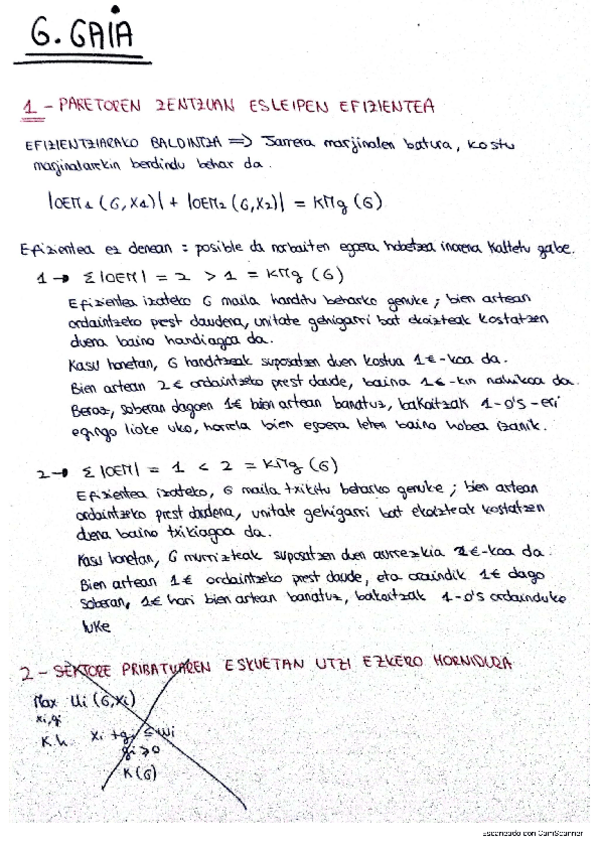 6. GAIA
1 - PARETOREN ZENTZUAN ESLEIPEN EFIZIENTEA
EFIZIENTZIARAKO BALDINTZA => Sarrera marjinalen batura, kostu
marjinalarekin berdindu behar da.
|OEM1 (G,X1)| + |OEM2 (G,X2)| = KMg (G)
Efizientea ez denean : posible da norbaiten egoera hobetzea inorena kaltetu gabe.
1 → Σ|OEM| = 2 > 1 = KMg (G)
Efizientea izateko G maila handitu beharko genuke ; bien artean
ordaintzeko prest daudena, unitate gehigarri bat ekoizteak kostatzen
duena baino handiagoa da.
Kasu honetan, G handitzeak suposatzen duen kostua 1€-koa da.
Bien artean 2€ ordaintzeko prest daude, baina 1€-kin nahikoa da.
Beraz, soberan dagoen 1€ bien artean banatuz, bakoitzak 1-0'5-eri
egingo lioke uko, horrela bien egoera lehen baino hobea izanik.
2 → Σ|OEM| = 1 < 2 = KMg (G)
Efizientea izateko, G maila txikitu beharko genuke ; bien artean
ordaintzeko prest daudena, unitate gehigarri bat ekoizteak kostatzen
duena baino txikiagoa da.
Kasu honetan, G murrizteak suposatzen duen aurrezkia 2€-koa da.
Bien artean 1€ ordaintzeko prest daude, eta oraindik 1€ dago
soberan, 1€ hori bien artean banatuz, bakoitzak 1-0'5 ordainduko
luke
2 - SEKTORE PRIBATUAREN ESKUETAN UTZI EZKERO HORNIDURA
Max Ui (G,Xi)
xi,gi
K.h. Xi + gi ≤ Wi
gi ≥ 0
K(G)
Escaneado con CamScanner